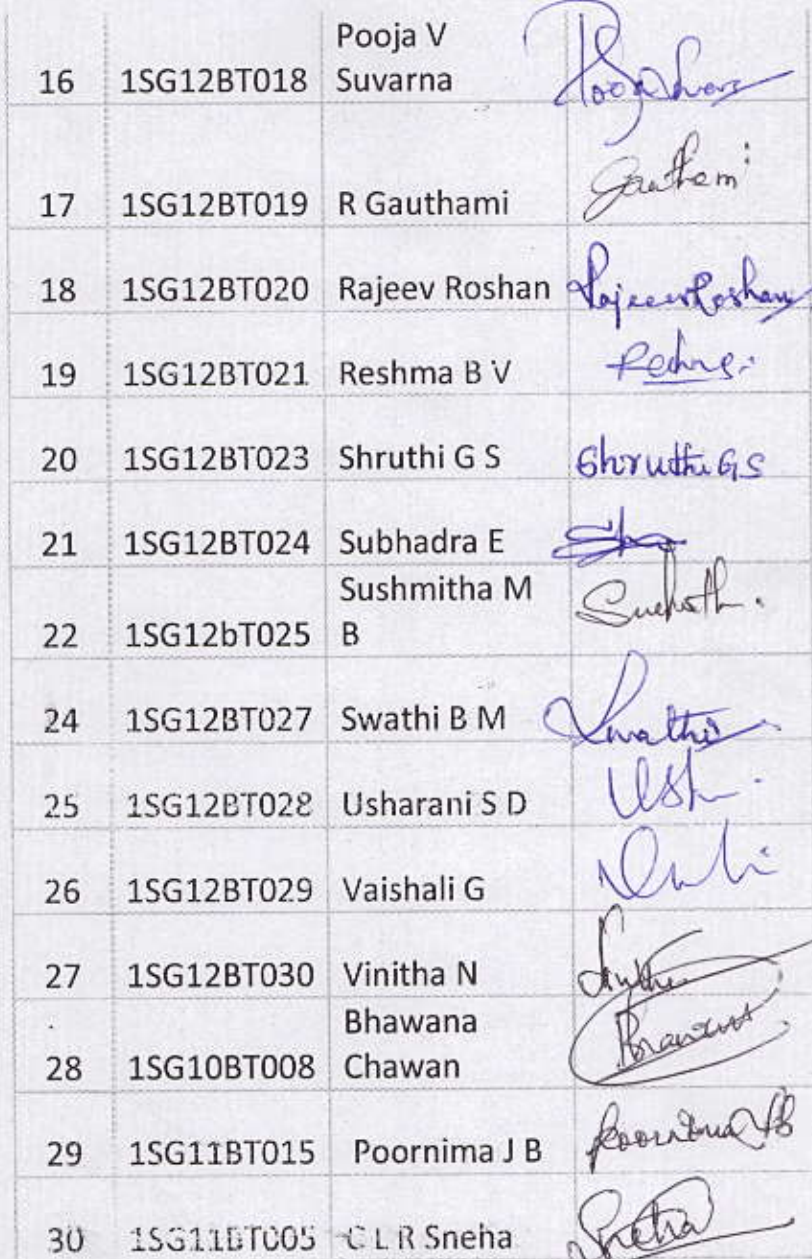 Pooja V
16 1SG12BT018 Suvarna
17 1SG12BT019 R Gauthami Gauthami
18 1SG12BT020 Rajeev Roshan Rajeev Roshan
19 1SG12BT021 Reshma B V
20 1SG12BT023 Shruthi G S Shruthi G S
21 1SG12BT024 Subhadra E
Sushmitha M
22 1SG12bT025 B
24 1SG12BT027 Swathi B M Swathi
25 1SG12BT028 Usharani S D Ush
26 1SG12BT029 Vaishali G
27 1SG12BT030 Vinitha N
Bhawana
28 1SG10BT008 Chawan
29 1SG11BT015 Poornima J B Poornima J B
30 1SG11BT005 C L R Sneha Sneha